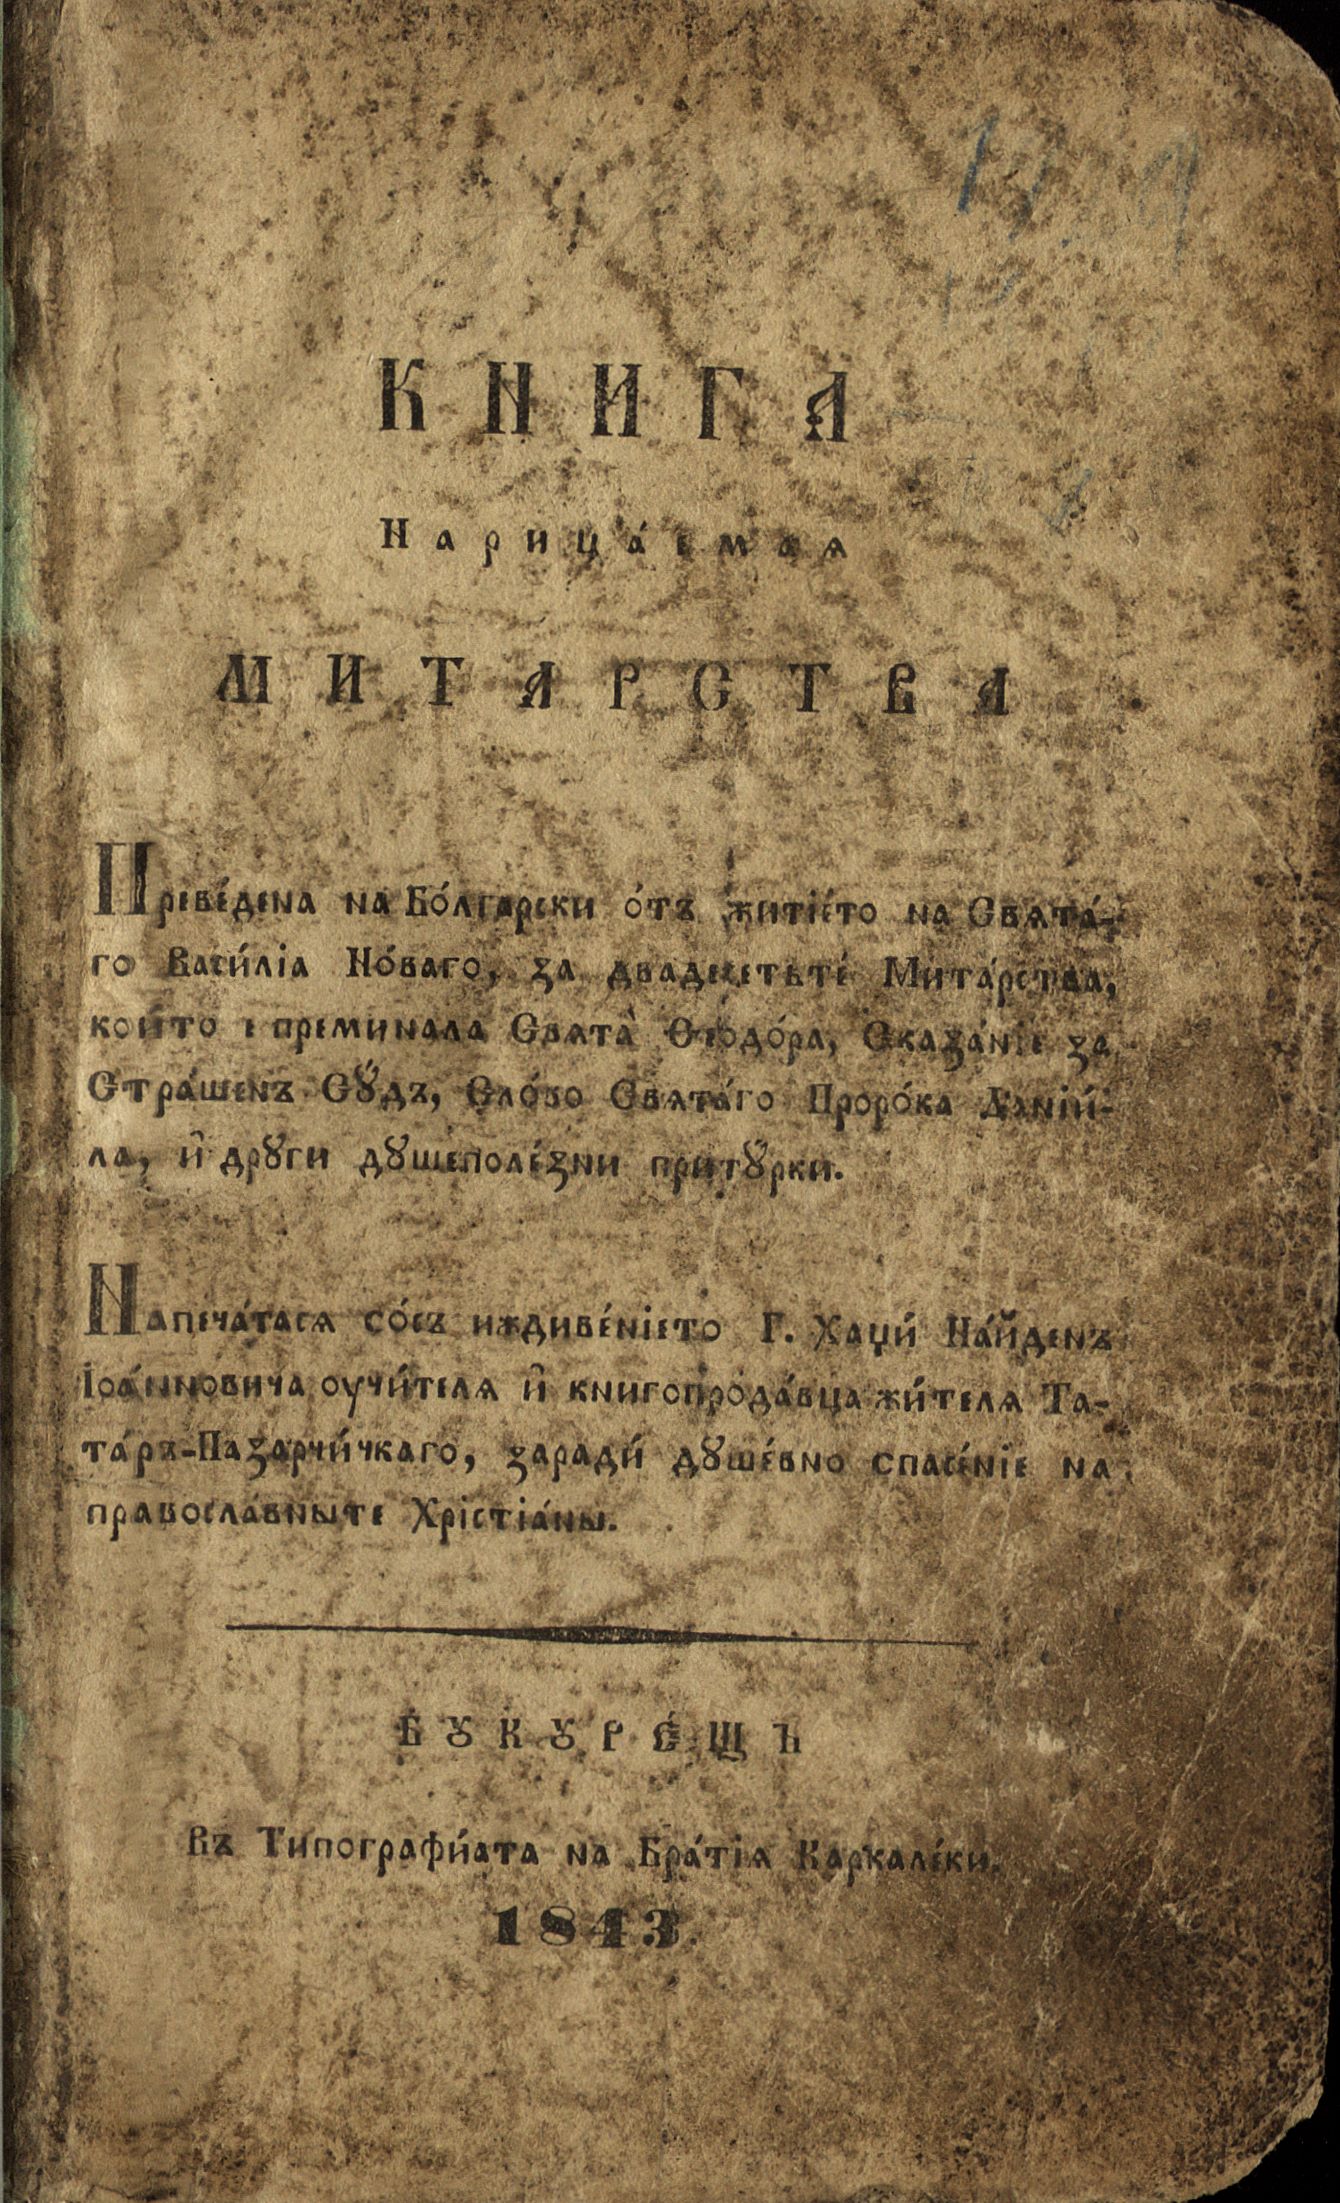 КНИГА
Нарица́емая
МИТАРСТВА
Преве́дена на Бо́лгарски о́тъ житїе́то на Свѧта́-
го Васи́лїа Но́ваго, за двадесетьте́ Мита́рства,
кои́то е преминала Свѧта̀ Ѳеодо́ра, Сказа́нїе за
Стра́шенъ Сꙋ́дъ, Сло́во Свѧта́го Проро́ка Данїи́-
ла, и҆̀ дрꙋги дꙋшеполе́зни притꙋ́рки.
Напеча́тасѧ со́съ иждиве́нїето Г. Хаџи́ На́йденъ
Їоа́нновича оучи́телѧ и҆̀ книгопрода́вца жи́телѧ Та-
та́ръ-Пазарчи́чкаго, заради́ дꙋше́вно спасе́нїе на
правосла́вныте Хрїстїа́ны.
БꙋКꙋРЕ́ЩЪ
Въ Типографи́ата на Бра́тїѧ Каркале́ки.
1843.